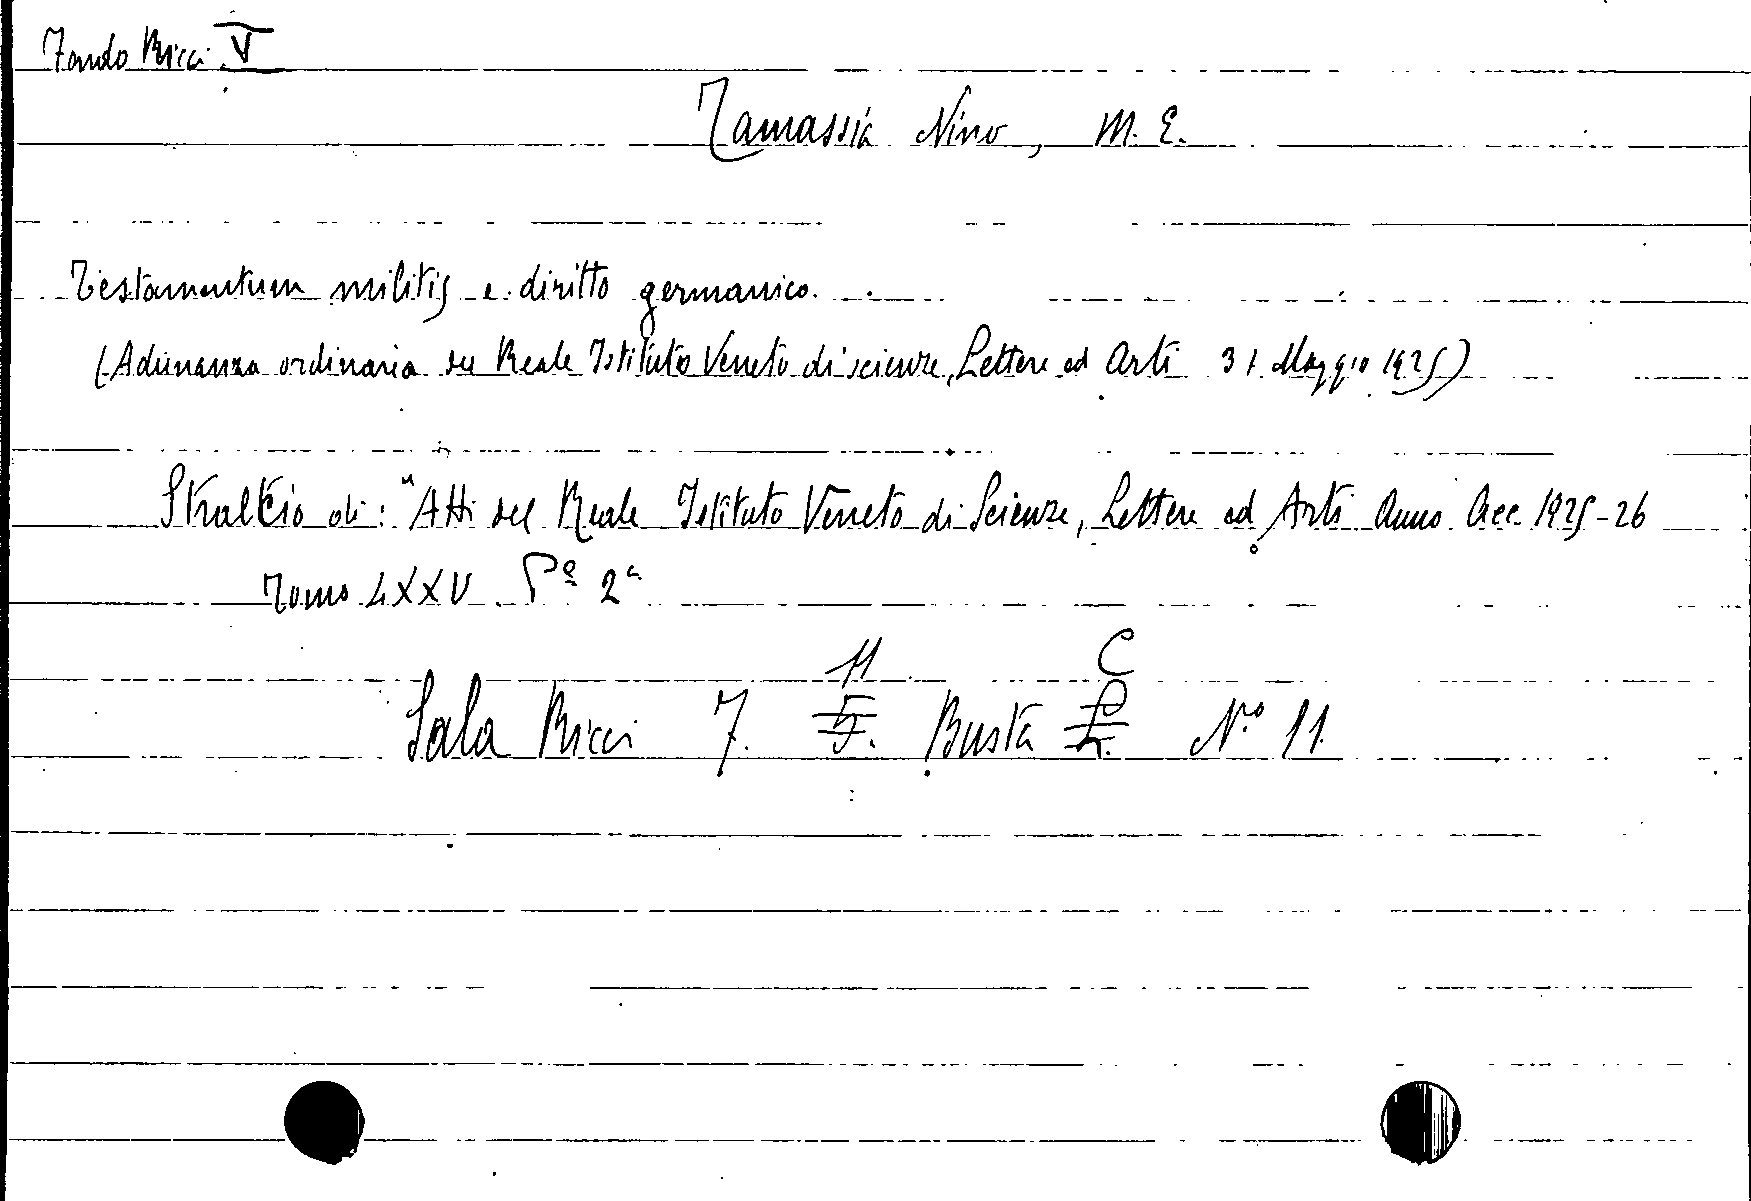 Fondo Ricci V
Tamassia Nino, M. E.
Testamentum militis e diritto germanico.
(Adunanza ordinaria del Reale Istituto Veneto di scienze, Lettere ed Arti 31 Maggio 1925)
Stralcio di: "Atti del Reale Istituto Veneto di Scienze, Lettere ed Arti Anno Acc. 1925-26
Tomo LXXXV Pª 2ª
11 C
Sala Ricci F. Busta N.° 11